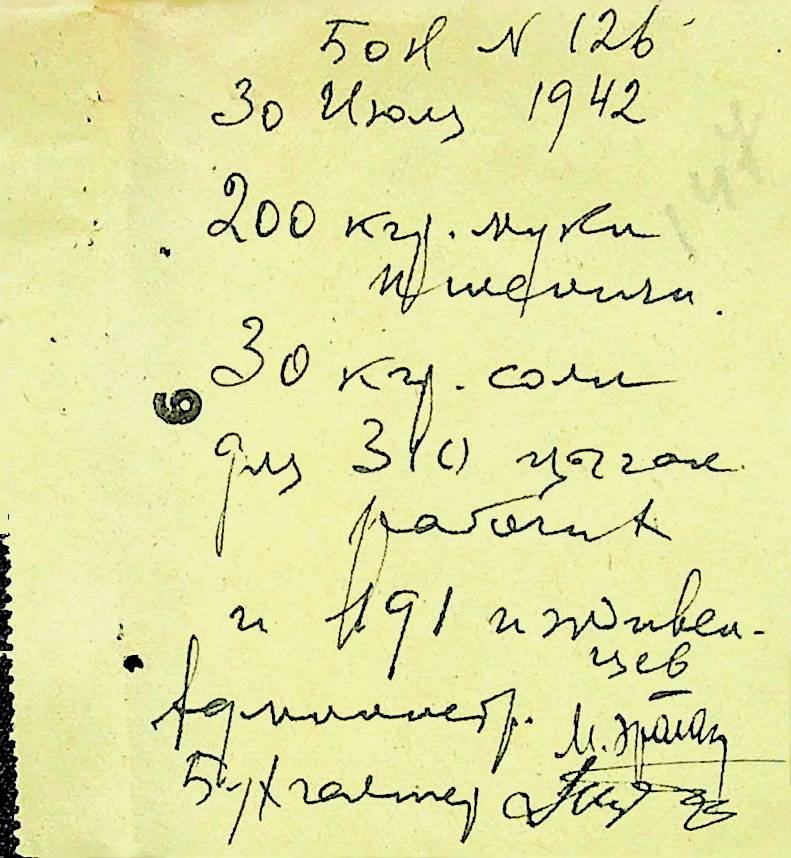 Бон N 126
30 Июля 1942
147
200 кгр. муки
пшеничн.
30 кгр. соли
6
для 310 цыган
рабочих
и 191 иждивен-
цев
Администр.
Бухгалтер